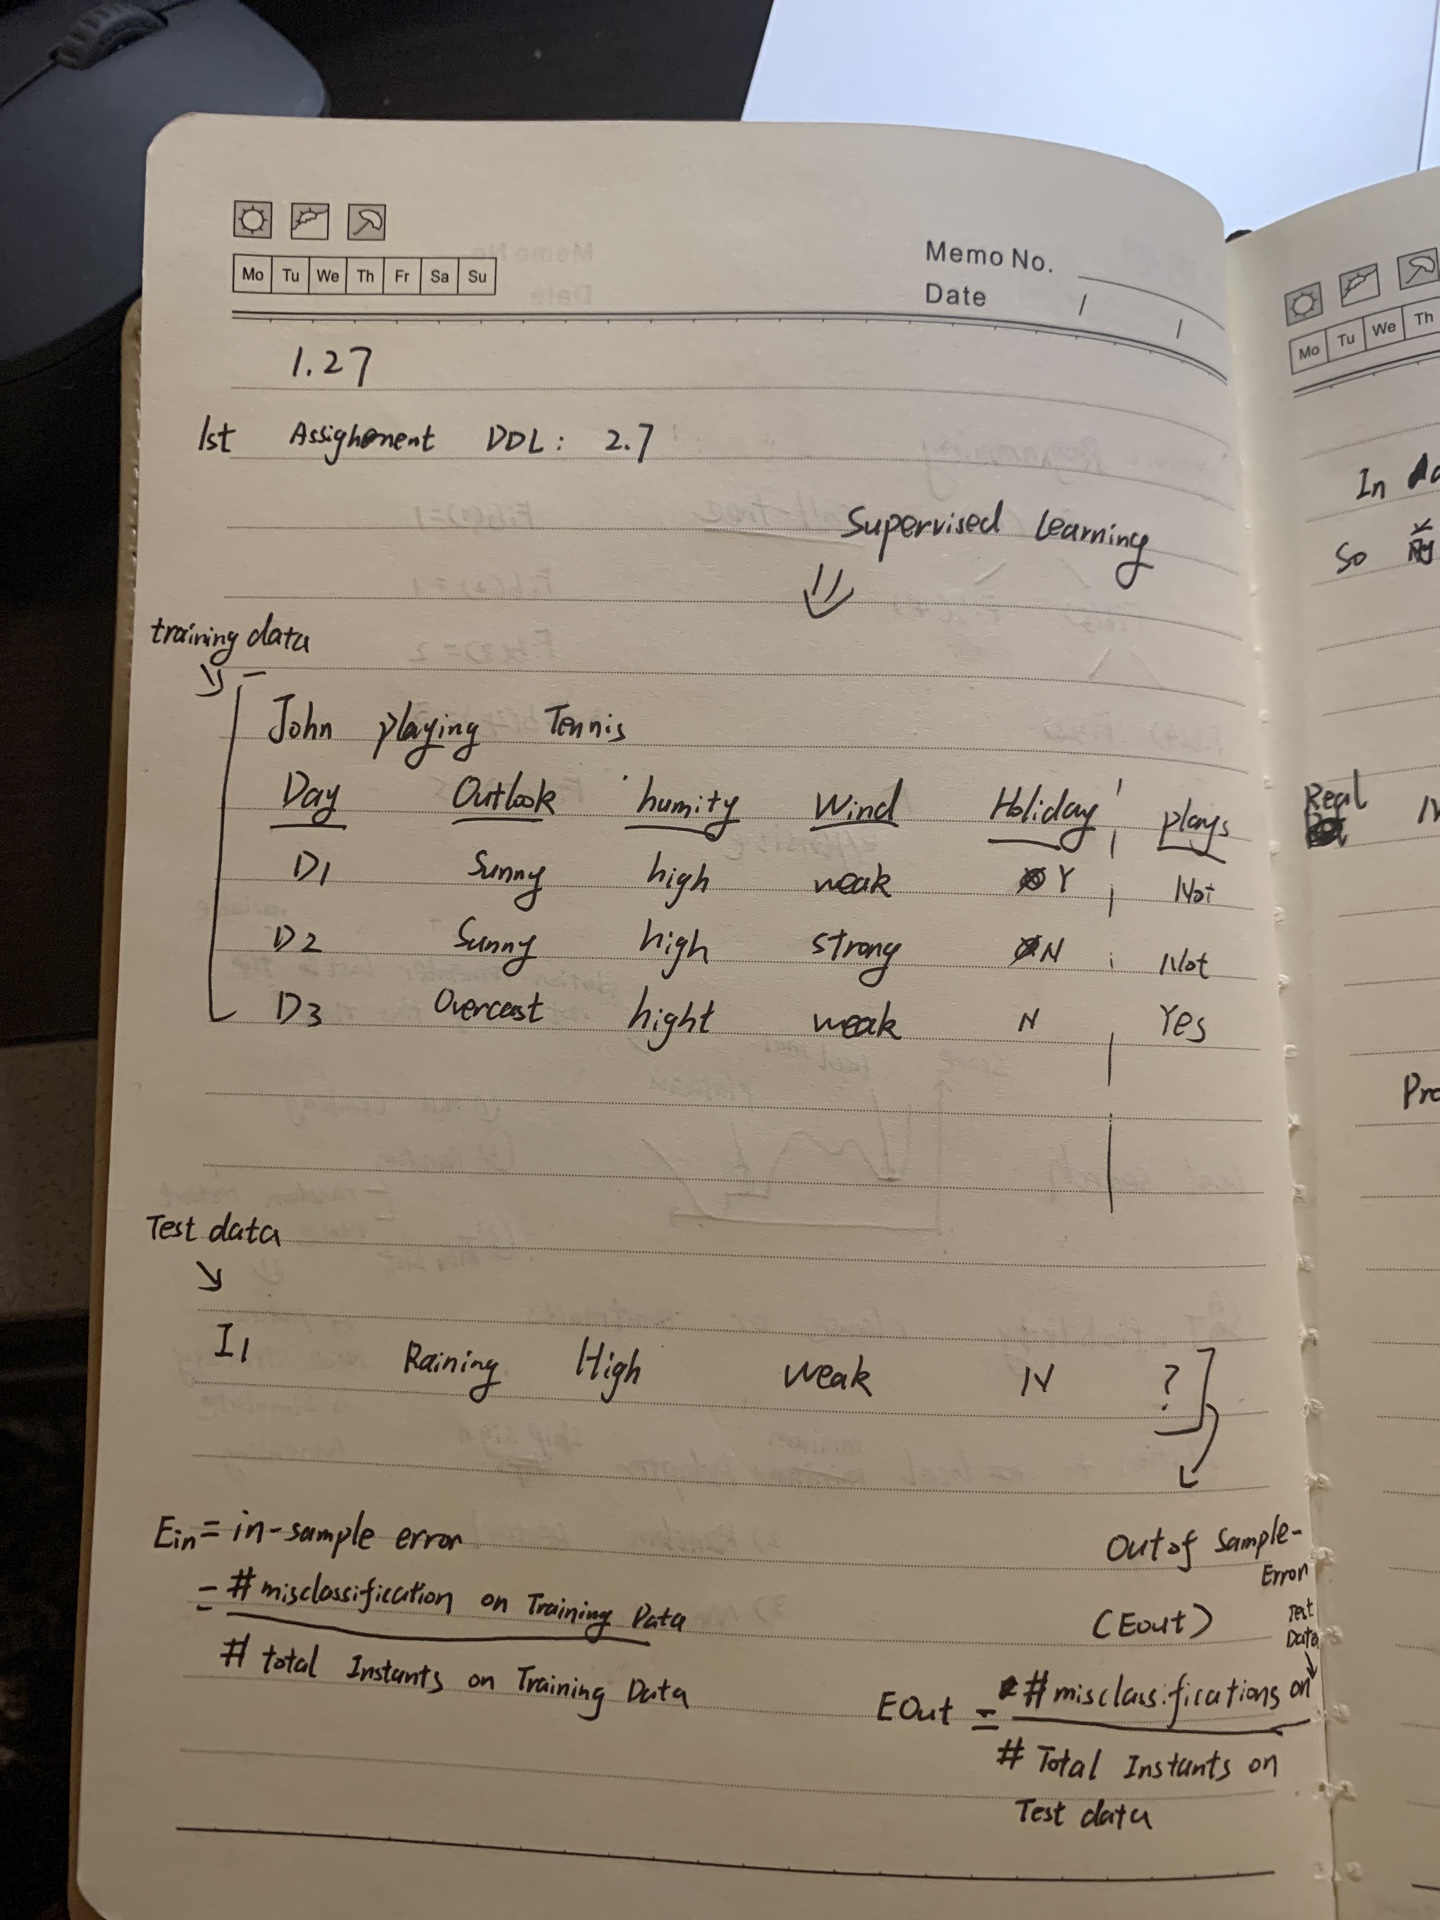 Mo Tu We Th Fr Sa Su
Memo No.
Date / /
1.27
1st Assighment DDL: 2.7
Supervised Learning
training data
John playing Tennis
Day Outlook humity Wind Holiday plays
D1 Sunny high weak Y Not
D2 Sunny high strong N Not
D3 Overcast hight weak N Yes
Test data
I1 Raining High weak N ?
Ein = in-sample error
= # misclassification on Training Data
# total Instants on Training Data
Out of Sample-
Error
(Eout)
Test
Data
EOut = # misclassifications on
# Total Instants on
Test data
Mo Tu We Th
In
So
Real